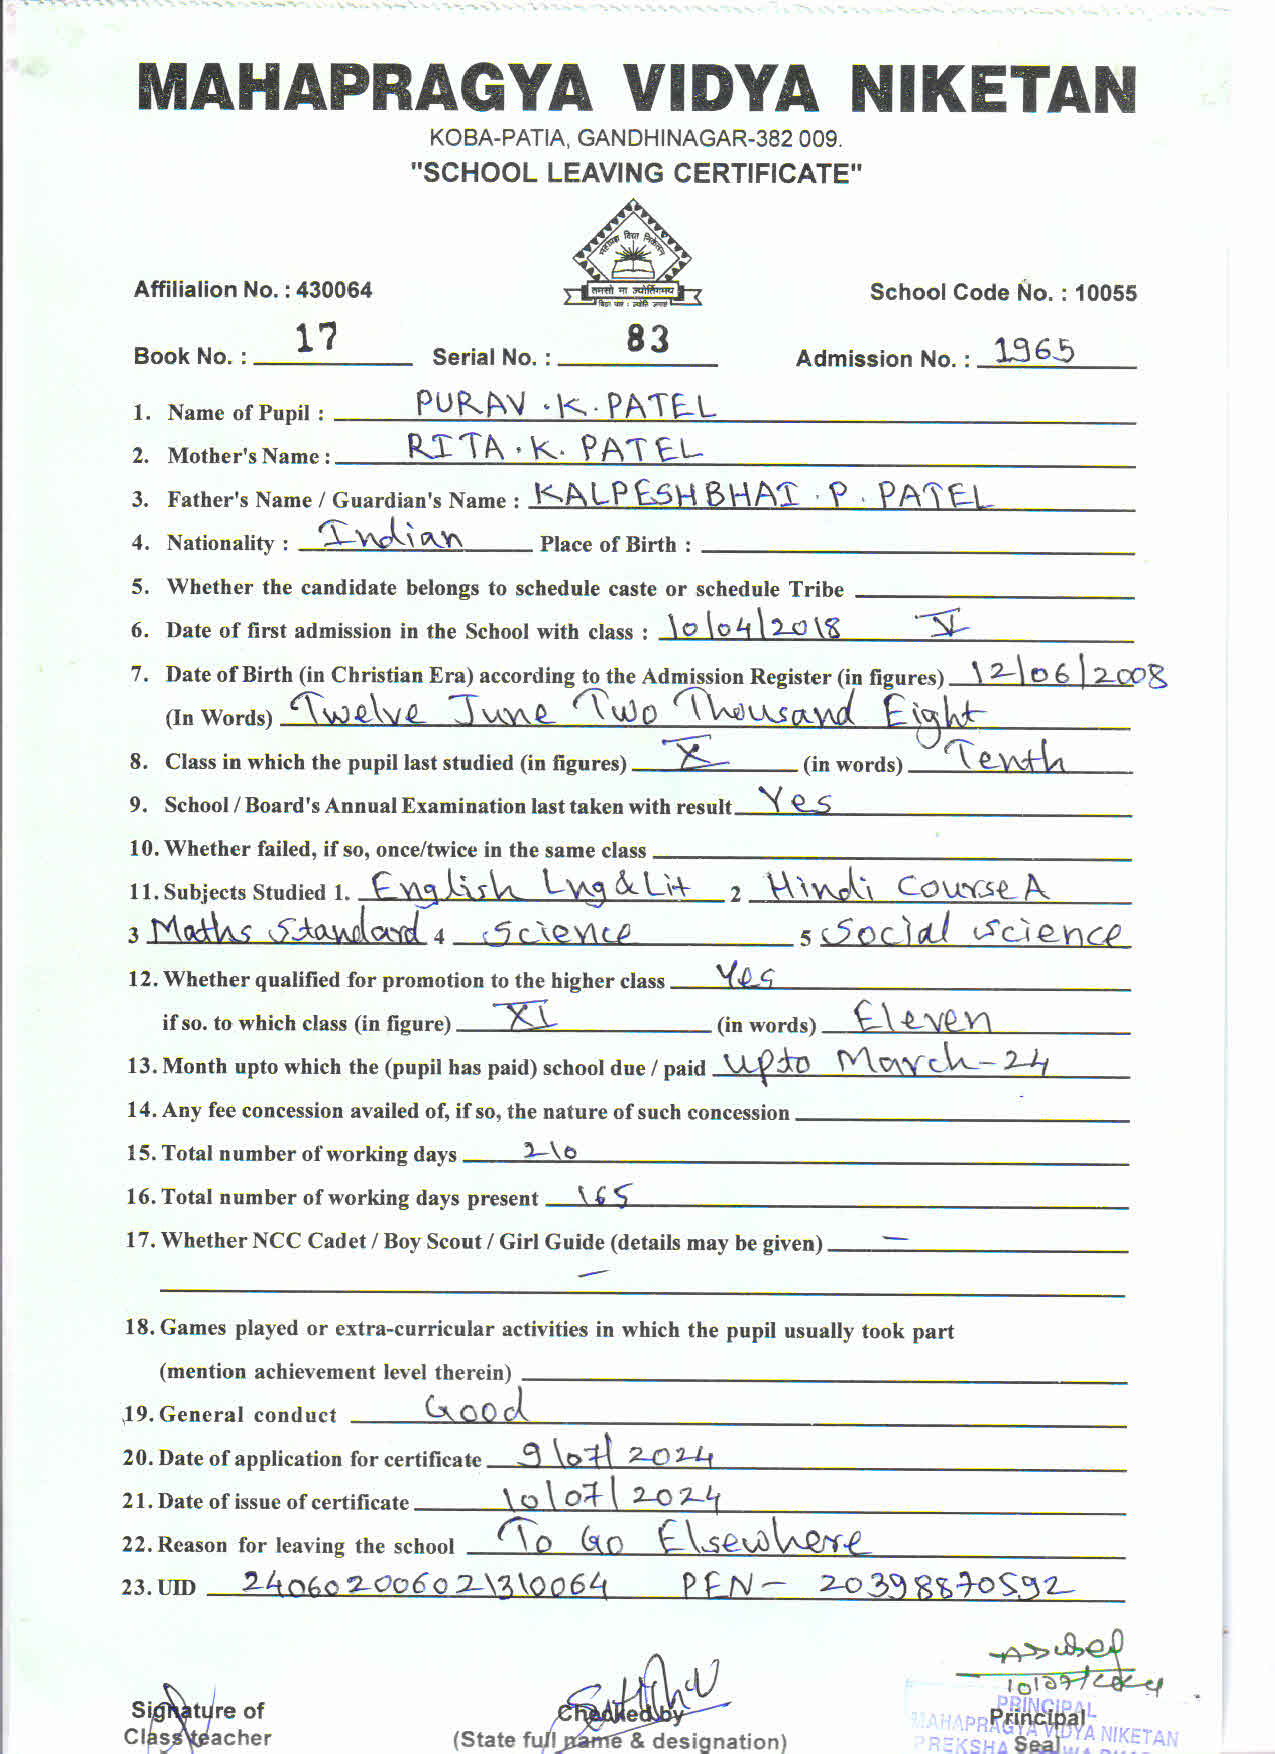 MAHAPRAGYA VIDYA NIKETAN
KOBA-PATIA, GANDHINAGAR-382 009.
"SCHOOL LEAVING CERTIFICATE"
महाप्रज्ञ विद्या निकेतन
तमसो मा ज्योतिर्गमय
Affilialion No. : 430064 School Code No. : 10055
Book No. : 17 Serial No. : 83 Admission No. : 1965
1. Name of Pupil : PURAV . K. PATEL
2. Mother's Name : RITA . K. PATEL
3. Father's Name / Guardian's Name : KALPESHBHAI . P. PATEL
4. Nationality : Indian Place of Birth :
5. Whether the candidate belongs to schedule caste or schedule Tribe
6. Date of first admission in the School with class : 10/04/2018 V
7. Date of Birth (in Christian Era) according to the Admission Register (in figures) 12/06/2008
(In Words) Twelve June Two Thousand Eight
8. Class in which the pupil last studied (in figures) X (in words) Tenth
9. School / Board's Annual Examination last taken with result Yes
10. Whether failed, if so, once/twice in the same class
11. Subjects Studied 1. English Lng & Lit 2 Hindi Course A
3 Maths Standard 4 Science 5 Social Science
12. Whether qualified for promotion to the higher class Yes
if so. to which class (in figure) XI (in words) Eleven
13. Month upto which the (pupil has paid) school due / paid upto March-24
14. Any fee concession availed of, if so, the nature of such concession
15. Total number of working days 210
16. Total number of working days present 165
17. Whether NCC Cadet / Boy Scout / Girl Guide (details may be given) —
—
18. Games played or extra-curricular activities in which the pupil usually took part
(mention achievement level therein)
19. General conduct Good
20. Date of application for certificate 9/07/2024
21. Date of issue of certificate 10/07/2024
22. Reason for leaving the school To Go Elsewhere
23. UID 240602006021310064 PEN - 20398870592
10/07/2024
Signature of Checked by Principal
Class teacher (State full name & designation) Seal
PRINCIPAL
MAHAPRAGYA VIDYA NIKETAN
PREKSHA